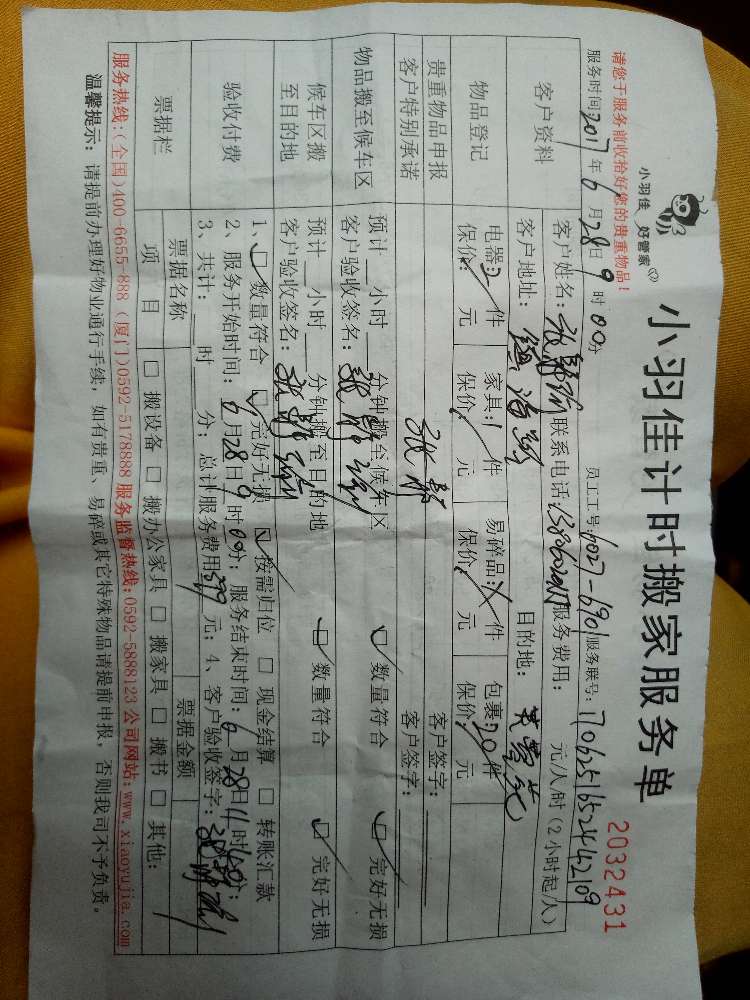 小羽佳 好管家
小羽佳计时搬家服务单
2032431
请您于服务前收拾好您的贵重物品！
服务时间2017年6月28日9时00分 员工工号：6027-6901 服务联号：
客户资料
客户姓名： 联系电话： 服务费用： 元/人/时(2小时起/人)
客户地址： 目的地：
物品登记
电器：2件 家具：1件 易碎品： 件 包裹：20件
保价： 元 保价： 元 保价： 元 保价： 元
贵重物品申报 客户签字：
客户特别承诺 客户签字：
物品搬至候车区
预计 小时 分钟搬至候车区 数量符合 完好无损
客户验收签名：
候车区搬至目的地
预计 小时 分钟搬至目的地 数量符合 完好无损
客户验收签名：
验收付费
1、 数量符合 完好无损 按需归位 □ 现金结算 □ 转账汇款
2、服务开始时间：6月28日9时00分；服务结束时间：6月28日11时40分；
3、共计： 时 分；总计服务费用 元；4、客户验收签字：
票据栏
票据名称 票据金额
项 目 □ 搬设备 □ 搬办公家具 □ 搬家具 □ 搬书 □ 其他：
服务热线：(全国)400-6655-888 (厦门)0592-5178888 服务监督热线：0592-5888123 公司网站：www.xiaoyujia.com
温馨提示：请提前办理好物业通行手续，如有贵重、易碎或其它特殊物品请提前申报，否则我司不予负责。